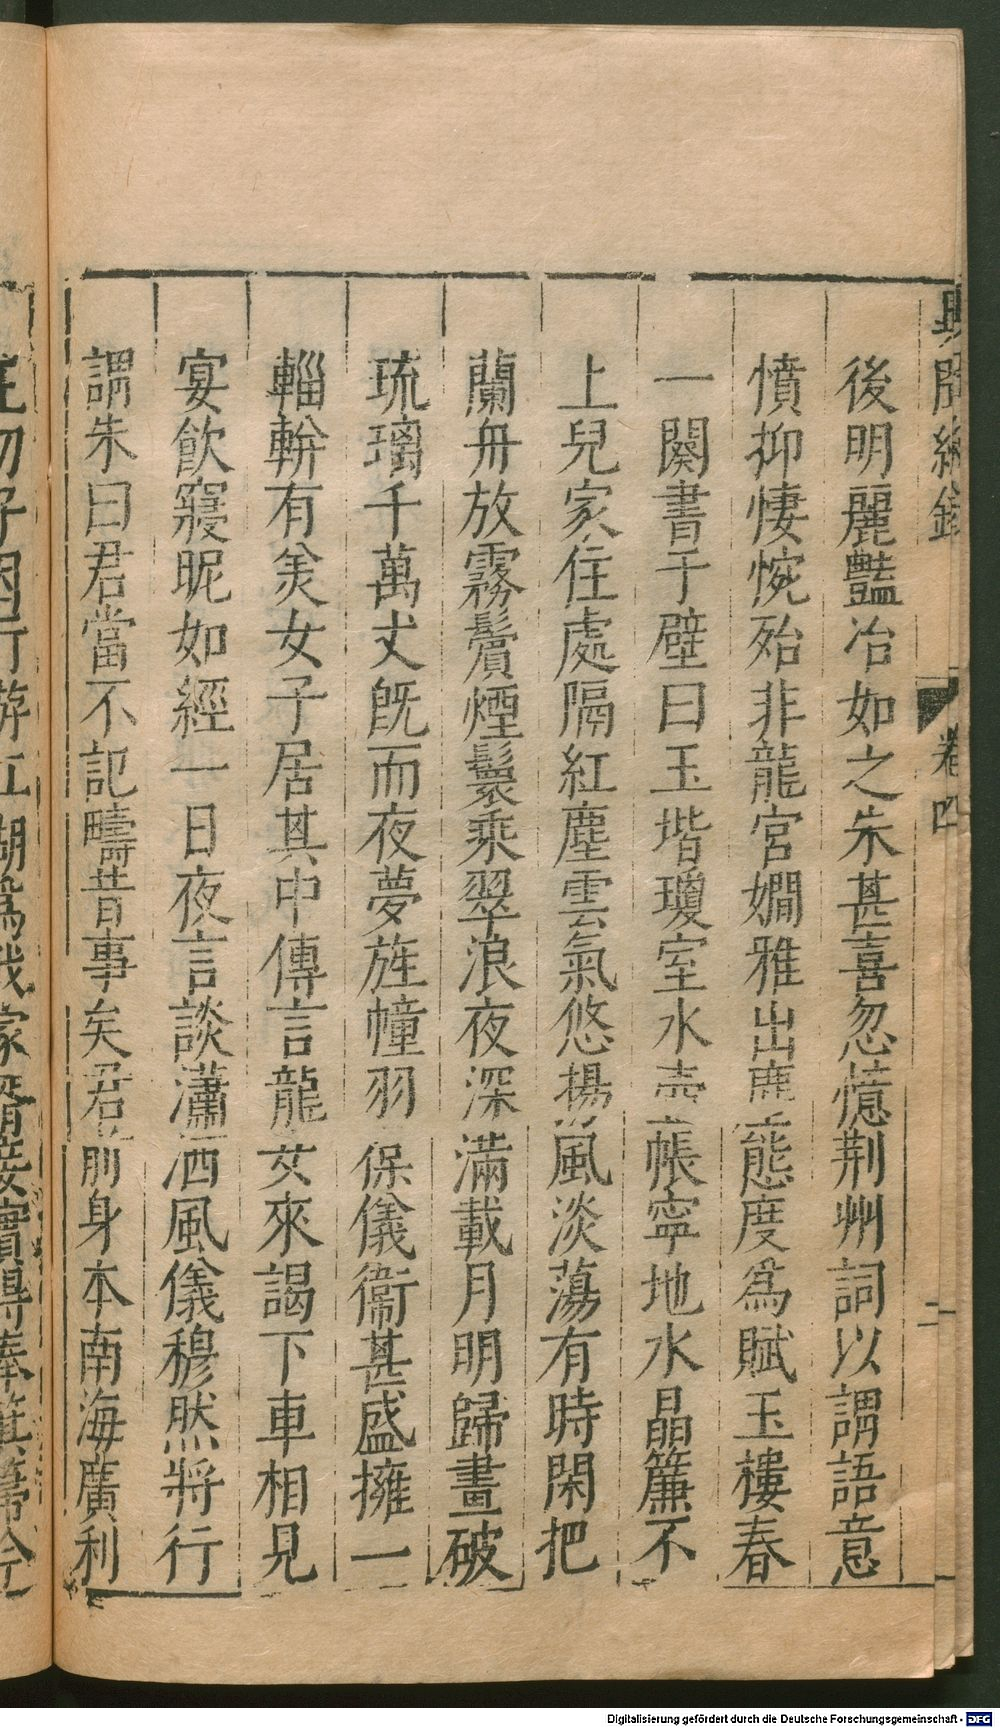 後明麗豔冶如之朱甚喜忽憶荆州詞以謂語意
憤抑悽惋殆非龍宮嫺雅出塵態度爲賦玉樓春
一闋書于壁曰玉堦瓊室水壺帳寕地水晶簾不
上兒家住處隔紅塵雲氣悠揚風淡蕩有時閑把
蘭舟放霧鬢煙鬟乘翠浪夜深滿載月明歸畫破
琉璃千萬丈既而夜夢旌幢羽保儀衞甚盛擁一
輜軿有美女子居其中傳言龍女來謁下車相見
宴飲寢昵如經一日夜言談瀟洒風儀穆然將行
謂朱曰君當不記疇昔事矣君前身本南海廣利
卷四
二
Digitalisierung gefördert durch die Deutsche Forschungsgemeinschaft - DFG